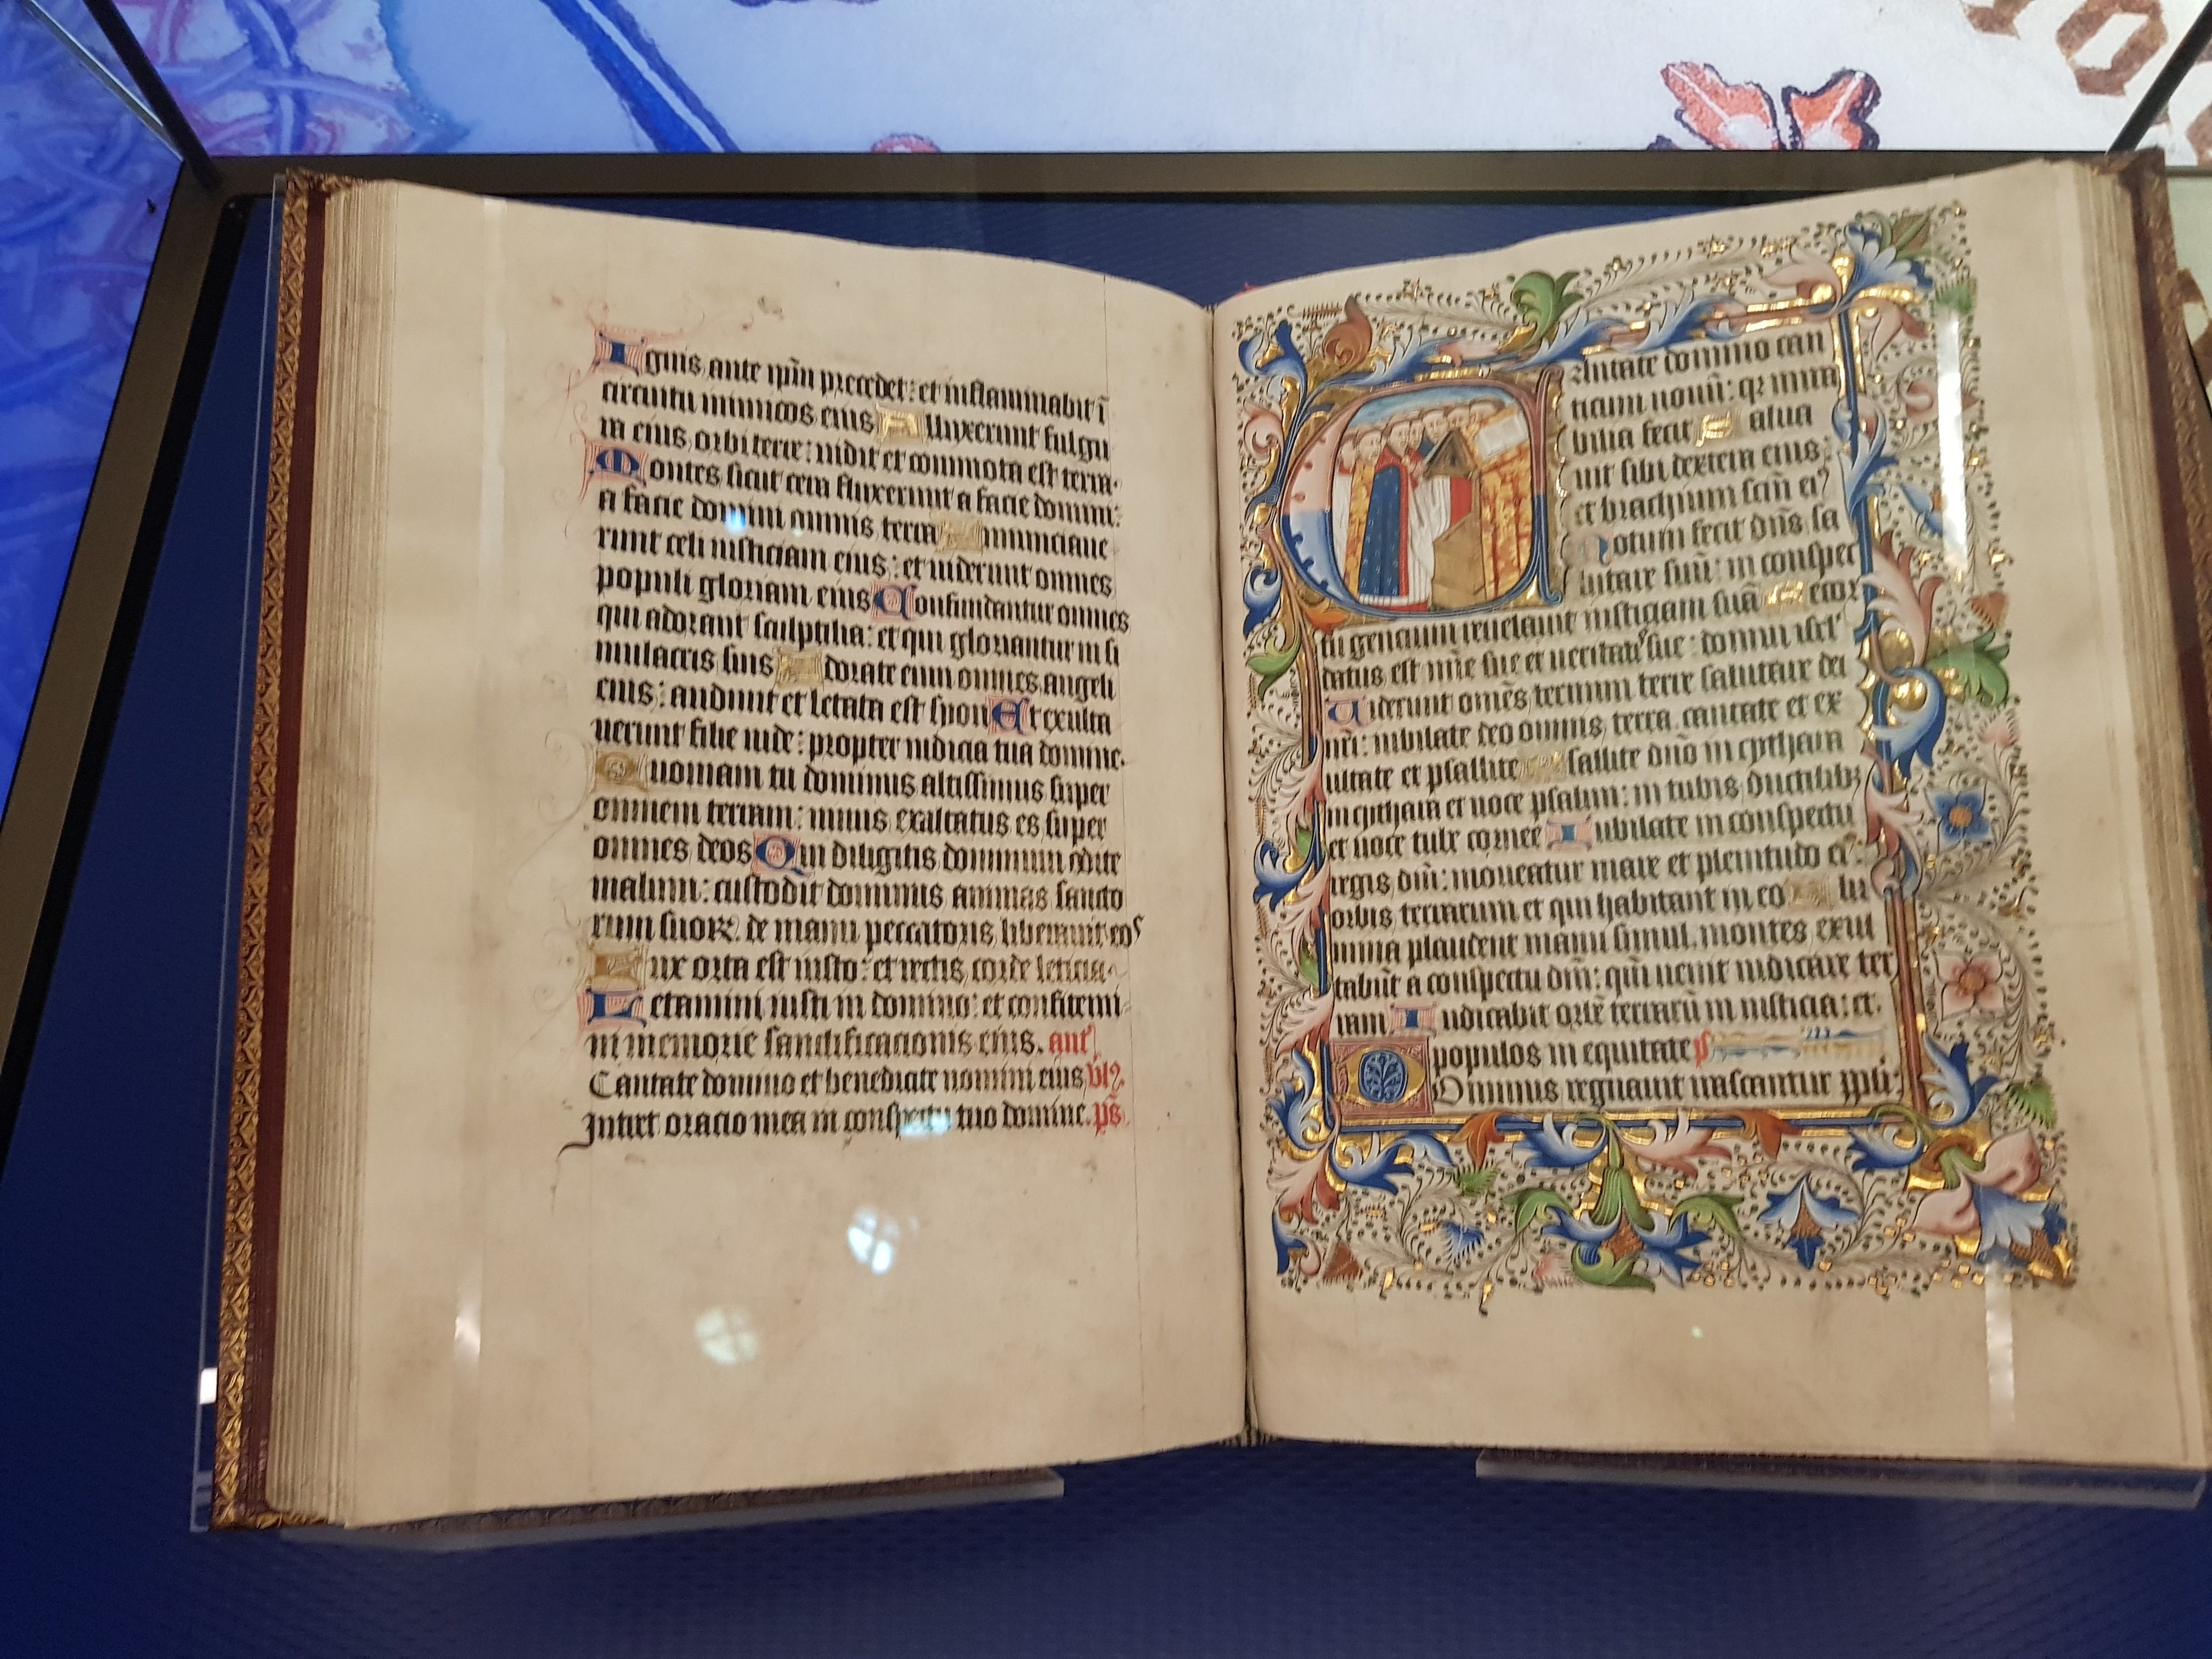 Ignis ante ipm precedet: et inflammabit i
circuitu inimicos eius Alluxerunt fulgu
ra eius orbi terre: vidit et commota est terra.
Montes sicut cera fluxerunt a facie domini:
a facie domini omnis terra Annunciave
runt celi iusticiam eius: et viderunt omnes
populi gloriam eius Confundantur omnes
qui adorant sculptilia: et qui gloriantur in si
mulacris suis Adorate eum omnes angeli
eius: audivit et letata est syon Et exulta
verunt filie iude: propter iudicia tua domine.
Quoniam tu dominus altissimus super
omnem terram: nimis exaltatus es super
omnes deos Qui diligitis dominum odite
malum: custodit dominus animas sancto
rum suoꝝ. de manu peccatoris liberavit eos
Lux orta est iusto: et rectis corde leticia
Letamini iusti in domino: et confitemi
ni memorie sanctificacionis eius. ant
Cantate domino et benedicite nomini eius
Intret oracio mea in conspectu tuo domine. ps
Cantate domino can
ticum novū: qr mira
bilia fecit Salva
vit sibi dextera eius:
et brachium scm ei
Notum fecit dns sa
lutare suū: in conspec
tu gencium revelavit iusticiam suā Recor
datus est mie sue et veritatis sue: domui isrl
Viderunt omes termini terre salutare dei
nri: iubilate deo omnis terra. cantate et ex
ultate et psallite Psallite dno in cythara
in cythara et voce psalmi: in tubis ductilibꝫ
et voce tube cornee Iubilate in conspectu
regis dni: moveatur mare et plenitudo ei:
orbis terrarum et qui habitant in eo Flu
mina plaudent manu simul. montes exul
tabūt a conspectu dni: qm venit iudicare ter
ram Iudicabit orbē terrarū in iusticia: et
populos in equitate ps
Dominus regnavit irascantur ppli: